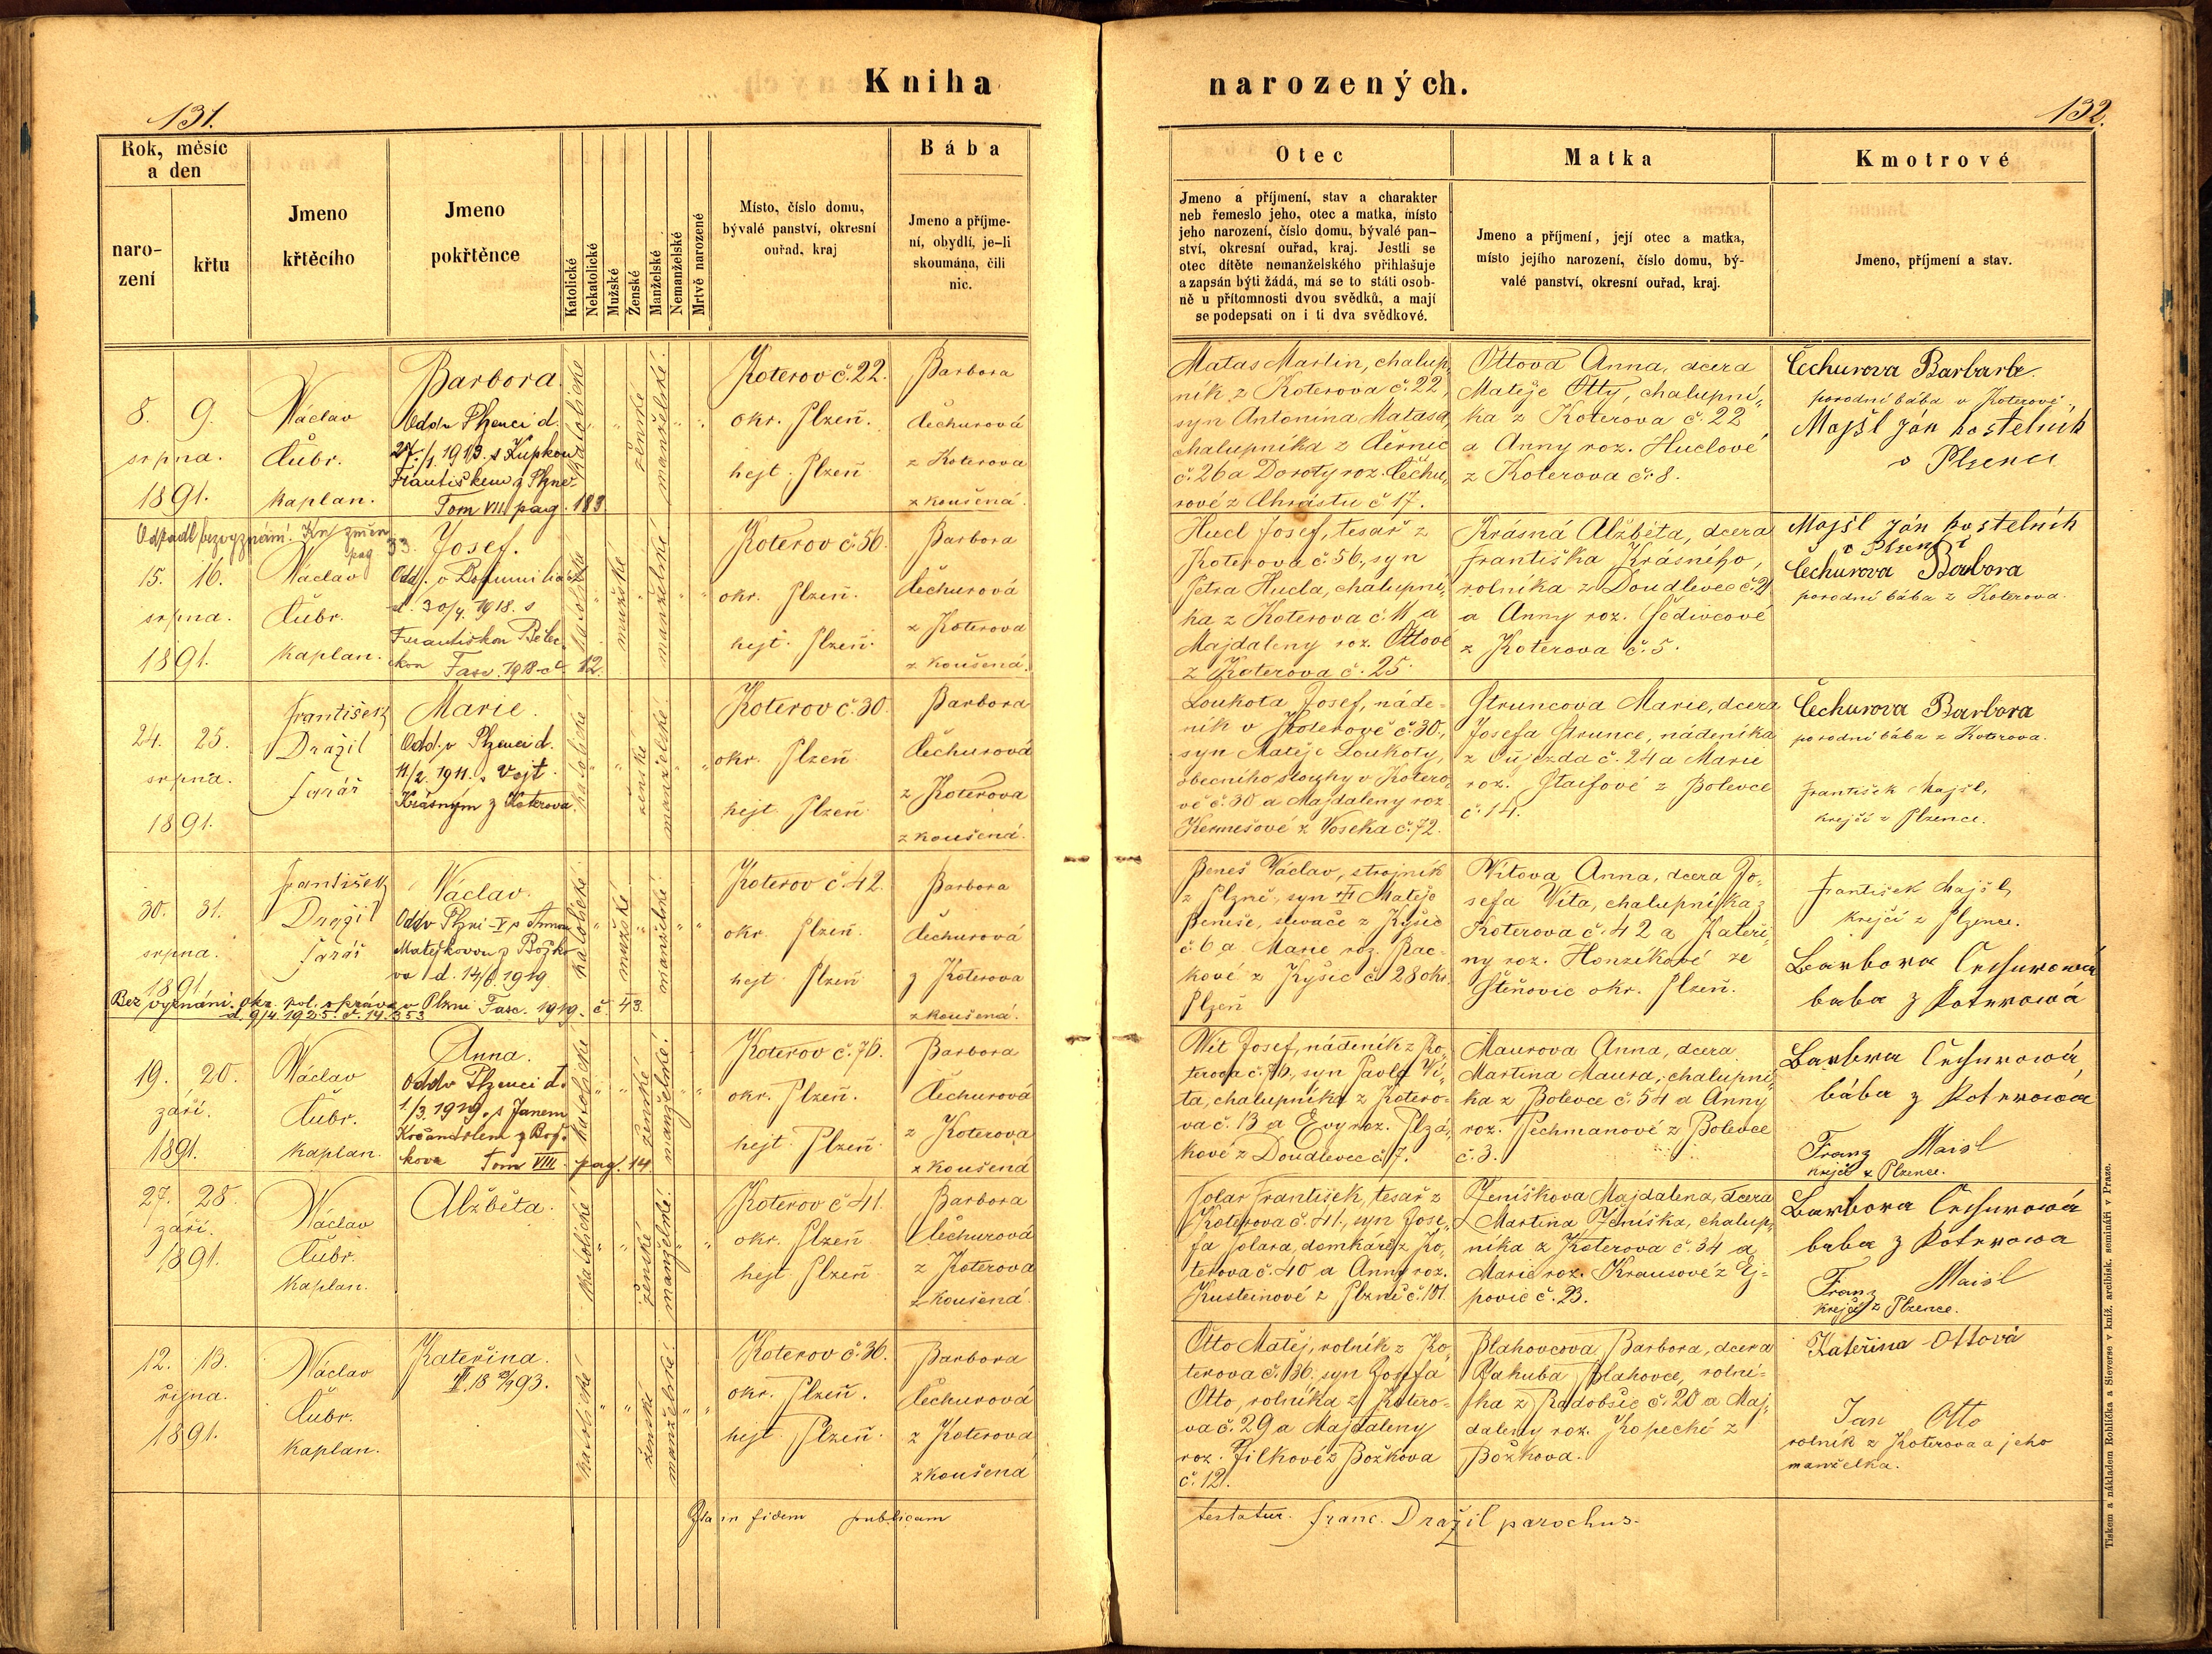 Kniha
narozených.
131.
132.
Rok, měsíc
a den
naro-
zení
křtu
Jmeno
křtěcího
Jmeno
pokřtěnce
Katolické
Nekatolické
Mužské
Ženské
Manželské
Nemanželské
Mrtvě narozené
Místo, číslo domu,
bývalé panství, okresní
ouřad, kraj
Bába
Jmeno a příjme-
ní, obydlí, je-li
skoumána, čili
nic.
Otec
Jmeno a příjmení, stav a charakter
neb řemeslo jeho, otec a matka, místo
jeho narození, číslo domu, bývalé pan-
ství, okresní ouřad, kraj. Jestli se
otec dítěte nemanželského přihlašuje
a zapsán býti žádá, má se to státi osob-
ně u přítomnosti dvou svědků, a mají
se podepsati on i ti dva svědkové.
Matka
Jmeno a příjmení, její otec a matka,
místo jejího narození, číslo domu, bý-
valé panství, okresní ouřad, kraj.
Kmotrové
Jmeno, příjmení a stav.
8. 9.
srpna.
1891.
Václav
Čubr.
kaplan.
Barbora.
Odd. v Plzenci d.
27./1. 1913. s Kupkou
Františkem z Plzně
Tom VII pag. 183
katolické
ženské
manželské.
Koterov č. 22.
okr. Plzeň.
hejt. Plzeň
Barbora
Čechurová
z Koterova
zkoušená.
Matas Martin, chalup„
ník z Koterova č. 22,
syn Antonína Matasa,
chalupníka z Černic
č. 26 a Doroty roz. Čechu„
rové z Chrástu č 17.
Ottova Anna, dcera
Matěje Otty, chalupní„
ka z Koterova č. 22
a Anny roz. Huclové
z Koterova č. 8.
Čechurova Barbara
porodní bába v Koterově.
Majšl Ján kostelník
v Plzenci
Odpadl bezvyznání. Kn. změn
pag 33.
15. 16.
srpna.
1891.
Václav
Čubr.
kaplan.
Josef.
d. 30/4. 1918. s
Fasc. 1918. č. 12.
katolické
mužské
manželské
Koterov č. 56.
okr. Plzeň.
hejt. Plzeň.
Barbora
Čechurová
z Koterova
zkoušená.
Hucl Josef, tesař z
Koterova č. 56., syn
Petra Hucla, chalupní„
ka z Koterova č. 11 a
Majdaleny roz. Ottové
z Koterova č. 25.
Krásná Alžběta, dcera
Františka Krásného,
rolníka z Doudlevec č. 21
a Anny roz. Šedivcové
z Koterova č. 5.
Majšl Ján kostelník
v Plzenci
Čechurova Barbora
porodní bába z Koterova.
24. 25.
srpna.
1891.
František
Dražil
farář
Marie.
Odd. v Plzenci d.
11/2. 1911. s Vojt.
Krásným z Koterova
katolické
ženské
manželské
Koterov č. 30.
okr. Plzeň
hejt Plzeň
Barbora
Čechurová
z Koterova
zkoušená.
Loukota Josef, náde-
ník v Koterově č. 30.,
syn Matěje Loukoty,
obecního slouhy v Kotero„
vě č. 30 a Majdaleny roz
Hermešové z Voseka č. 72.
Struncova Marie, dcera
Josefa Strunce, nádeníka
z Oujezda č. 24 a Marie
roz. Staifové z Bolevce
č. 14.
Čechurova Barbora
porodní bába z Koterova.
František Majšl,
krejčí z Plzence.
30. 31.
srpna.
1891
František
Dražil
farář
Václav.
Odd v Plzni-V s Annou
Matějkovou z Božko
va d. 14/6. 1919.
Bez vyznání. Okr. pol. správa v Plzni Fasc. 1919. č. 43.
d. 9/4 1925. č. 14.553
katolické
mužské
manželské
Koterov č 42.
okr. Plzeň.
hejt Plzeň
Barbora
Čechurová
z Koterova
zkoušená.
Beneš Václav, strojník
z Plzně, syn Matěje
Beneše, slevače z Kyšic
č. 6 a Marie roz. Bac-
kové z Kyšic č. 28 okr.
Plzeň
Vítova Anna, dcera Jo„
sefa Víta, chalupníka z
Koterova č. 42 a Kateři„
ny roz. Honzíkové ze
Štěňovic okr. Plzeň.
František Majšl,
krejčí z Plzence.
Barbora Čechurowá
baba z Koterowá
19. 20.
září.
1891.
Václav
Čubr.
kaplan.
Anna.
Odd v Plzenci d.
1./3. 1919. s Janem
kova Tom VIII. pag. 14
katolické
ženské
manželské.
Koterov č. 76.
okr. Plzeň.
hejt. Plzeň
Barbora
Čechurová
z Koterova
zkoušená
Vít Josef, nádeník z Ko„
terova č. 76., syn Pavla Ví„
ta, chalupníka z Kotero-
va č. 13 a Evy roz. Plzá„
kové z Doudlevec č. 7.
Maurova Anna, dcera
Martina Maura, chalupní„
ka z Bolevce č. 54 a Anny
roz. Pechmanové z Bolevce
č. 3.
Barbora Čechurowá,
bába z Koterowa
Franz Maisl
krejčí z Plzence.
27. 28.
září.
1891.
Václav
Čubr.
kaplan.
Alžběta.
katolické
ženské
manželské.
Koterov č 41.
okr. Plzeň
hejt Plzeň
Barbora
Čechurová
z Koterova
zkoušená
Tolar František, tesař z
Koterova č. 41., syn Jose„
fa Tolara, domkáře z Ko„
terova č. 40 a Anny roz.
Kusteinové z Plzně č. 101.
Ženíškova Majdalena, dcera
Martina Ženíška, chalup„
níka z Koterova č. 34 a
Marie roz. Krausové z Ej-
povic č. 23.
Barbora Čechurowá
baba z Koterowa
Franz Maisl
krejčí z Plzence.
12. 13.
října.
1891.
Václav
Čubr.
kaplan.
Kateřina.
katolické
ženské
manželské
Koterov č. 36.
okr. Plzeň.
hejt. Plzeň.
Barbora
Čechurová
z Koterova
zkoušená
Otto Matěj, rolník z Ko„
terova č. 36. syn Josefa
Otto, rolníka z Kotero-
va č. 29 a Majdaleny
roz. Jílkové z Božkova
č. 12.
Blahovcova Barbora, dcera
Jakuba Blahovce, rolní-
ka z Radobčic č. 20 a Maj„
daleny roz. Kopecké z
Božkova.
Kateřina Ottová
Jan Otto
rolník z Koterova a jeho
manželka.
Ita in fidem publicam
testatur. Franc. Dražil parochus.
Tiskem a nákladem Rohlíčka a Sieverse v kníž. arcibisk. semináři v Praze.